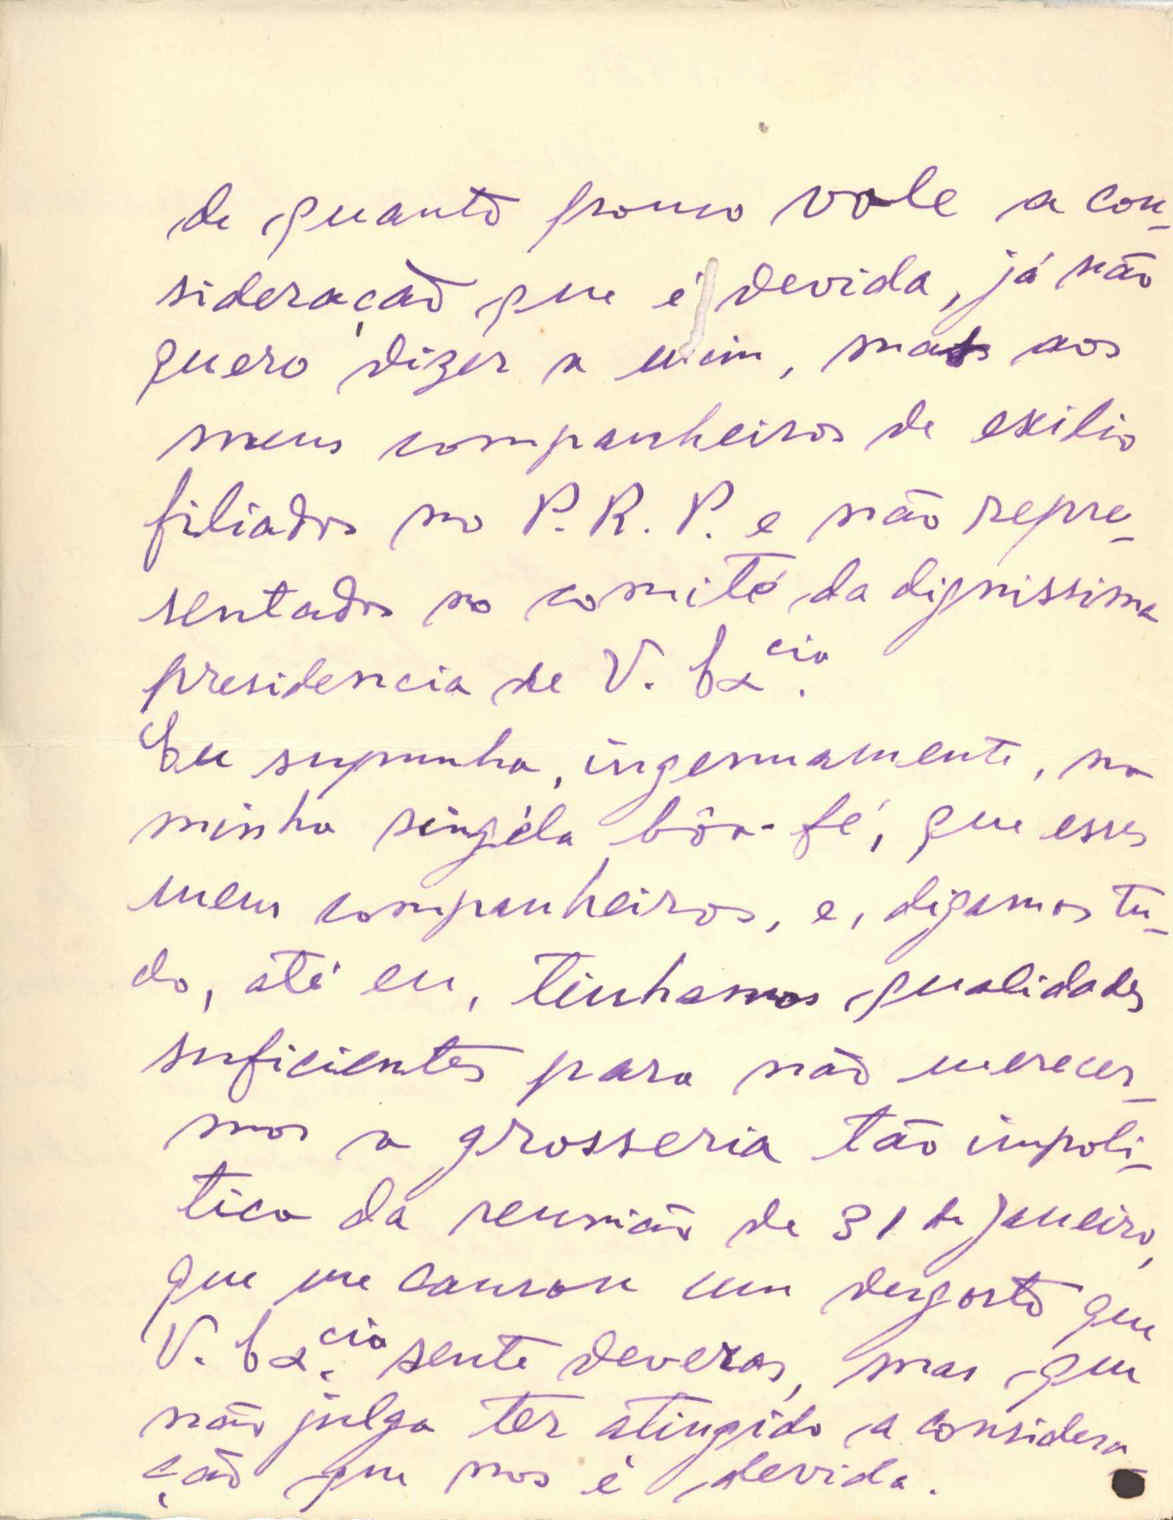 de quanto pouco vale a con-
sideração que é devida, já não
quero dizer a mim, mas aos
meus companheiros de exilio
filiados no P. R. P. e não repre-
sentados no comité da dignissima
presidencia de V. Ex.cia
Eu supunha, ingenuamente, na
minha singéla bôa-fé, que esses
meus companheiros, e, digamos tu-
do, até eu, tinhamos qualidades
suficientes para não merecer-
mos a grosseria tão impoli-
tica da reunião de 31 de Janeiro,
que me causou um desgosto que
V. Ex.cia sente deveras, mas que
não julga ter atingido a considera
ção que nos é devida.